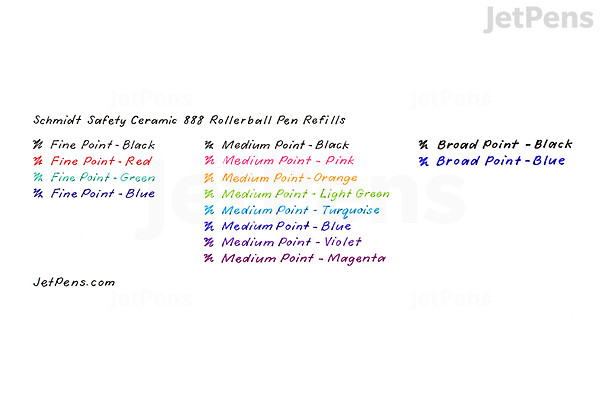 JetPens
Schmidt Safety Ceramic 888 Rollerball Pen Refills
Fine Point - Black
Fine Point - Red
Fine Point - Green
Fine Point - Blue
Medium Point - Black
Medium Point - Pink
Medium Point - Orange
Medium Point - Light Green
Medium Point - Turquoise
Medium Point - Blue
Medium Point - Violet
Medium Point - Magenta
Broad Point - Black
Broad Point - Blue
JetPens.com
JetPens
JetPens
JetPens
JetPens
JetPens